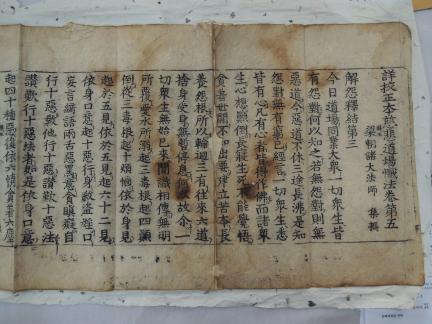 詳校正本慈悲道場懺法卷第五
梁朝諸大法師 集撰
解怨釋結第三
今日道場同業大衆一切衆生皆
有怨對何以知之若無怨對則無
惡道今惡道不休三途長沸是知
怨對無有窮已經言一切衆生悉
皆有心凡有心者皆得作佛而諸衆
生心想顚倒長寢生死不能覺悟
貪著世間不知出要建立苦本長
養怨根所以輪迴三有往來六道
捨身受身無暫停息何以故余一
切衆生無始已來闇識相傳無明
所覆愛水所溺起三毒根起四顚
倒從三毒根起十煩惱依於身見
起於五見依於五見起六十二見
依身口意起十惡行身殺盜婬口
妄言綺語兩舌惡罵意貪瞋癡自
行十惡敎他行十惡讚歎十惡法
讚歎行十惡法者如是依身口意
起四十種惡復依六情貪著六塵